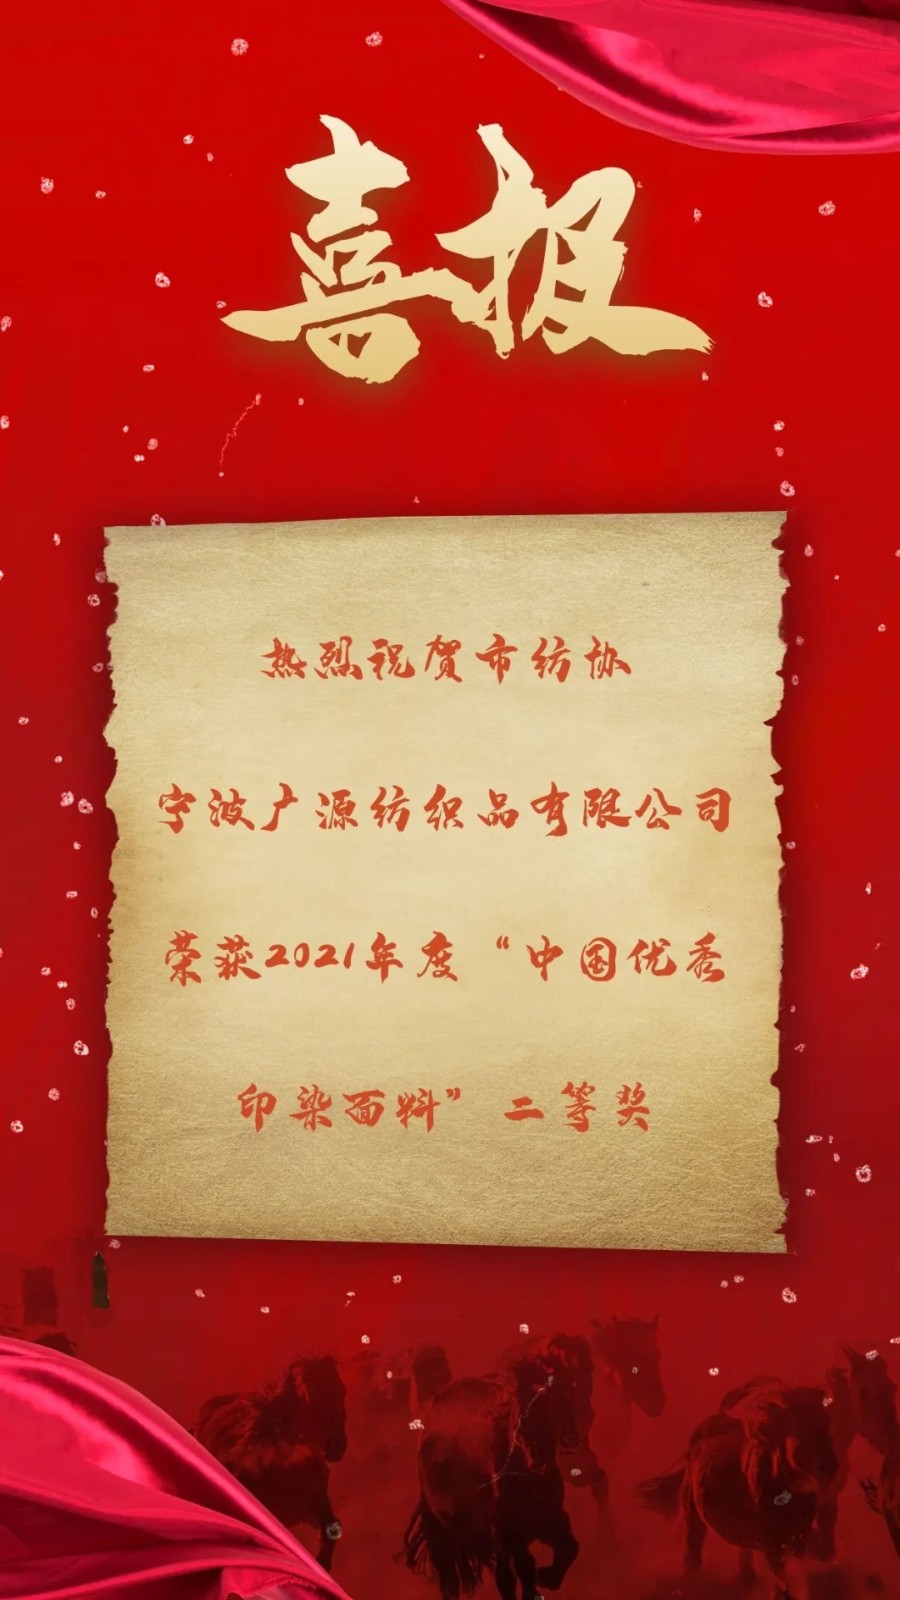 喜报
热烈祝贺市纺协
宁波广源纺织品有限公司
荣获2021年度“中国优秀
印染面料”二等奖